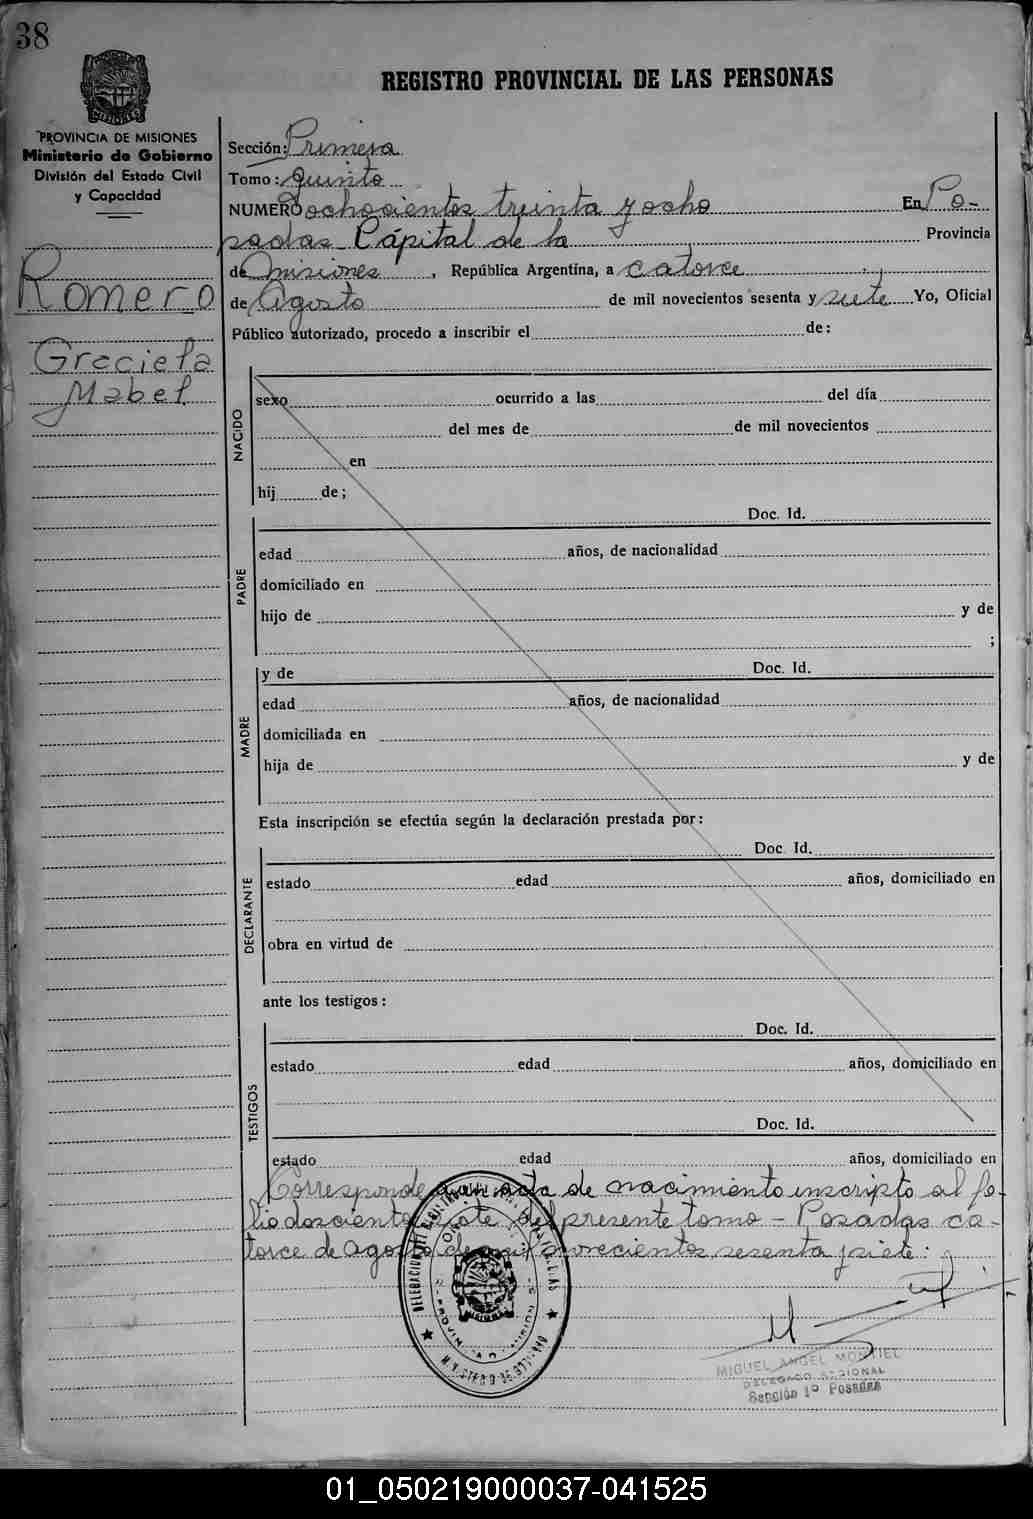 38
REGISTRO PROVINCIAL DE LAS PERSONAS
PROVINCIA DE MISIONES
Ministerio de Gobierno
División del Estado Civil
y Capacidad
Romero
Graciela
Mabel
Sección: Primera
Tomo: Quinto
NUMERO ochocientos treinta y ocho En Po-
sadas Cápital de la Provincia
de Misiones, República Argentina, a catorce
de Agosto de mil novecientos sesenta y siete Yo, Oficial
Público autorizado, procedo a inscribir el de:
NACIDO
sexo ocurrido a las del día
del mes de de mil novecientos
en
hij de;
PADRE
Doc. Id.
edad años, de nacionalidad
domiciliado en
hijo de y de
;
MADRE
y de Doc. Id.
edad años, de nacionalidad
domiciliada en
hija de y de
Esta inscripción se efectúa según la declaración prestada por:
DECLARANTE
Doc. Id.
estado edad años, domiciliado en
obra en virtud de
ante los testigos:
TESTIGOS
Doc. Id.
estado edad años, domiciliado en
Doc. Id.
estado edad años, domiciliado en
Corresponde acta de nacimiento inscripto al fo-
lio doscientos siete del presente tomo - Posadas ca-
torce de agosto de mil novecientos sesenta y siete:
MIGUEL ANGEL MONTIEL
DELEGADO REGIONAL
Sección 1º Posadas
01_050219000037-041525